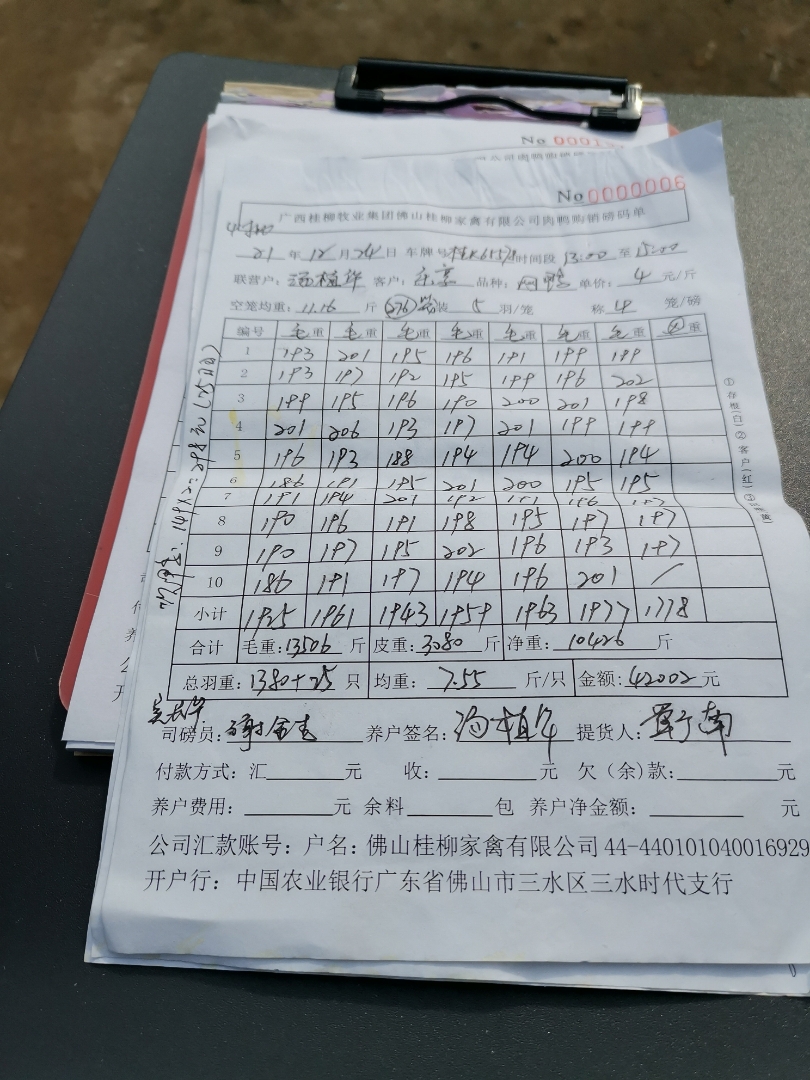 No 0000006
广西桂柳牧业集团佛山桂柳家禽有限公司肉鸭购销磅码单
21 年 12 月 24 日 车牌号 时间段 13:00 至 15:00
联营户: 汤植华 客户: 品种: 单价: 4 元/斤
空笼均重: 11.16 斤 276 装 5 羽/笼 称 4 笼/磅
编号 毛重 毛重 毛重 毛重 毛重 毛重 毛重 重
1 193 201 195 196 191 199 189
2 193 197 192 195 199 196 202
3 199 195 196 190 200 201 198
4 201 206 193 197 201 199 199
5 196 193 188 194 194 200 194
6 186 191 195 201 200 195 195
7 191 194 201 192 191
8 190 196 191 198 195 197 197
9 190 197 195 202 196 193 197
10 186 191 197 194 196 201 /
小计 1925 1961 1943 1959 1963 1977 1778
合计 毛重: 13506 斤 皮重: 3080 斤 净重: 10426 斤
总羽重: 1380+25 只 均重: 7.55 斤/只 金额: 42002 元
司磅员: 养户签名: 汤植华 提货人:
付款方式: 汇 元 收: 元 欠(余)款: 元
养户费用: 元 余料 包 养户净金额: 元
公司汇款账号: 户名: 佛山桂柳家禽有限公司 44-440101040016929
开户行: 中国农业银行广东省佛山市三水区三水时代支行
①存根(白)②客户(红)